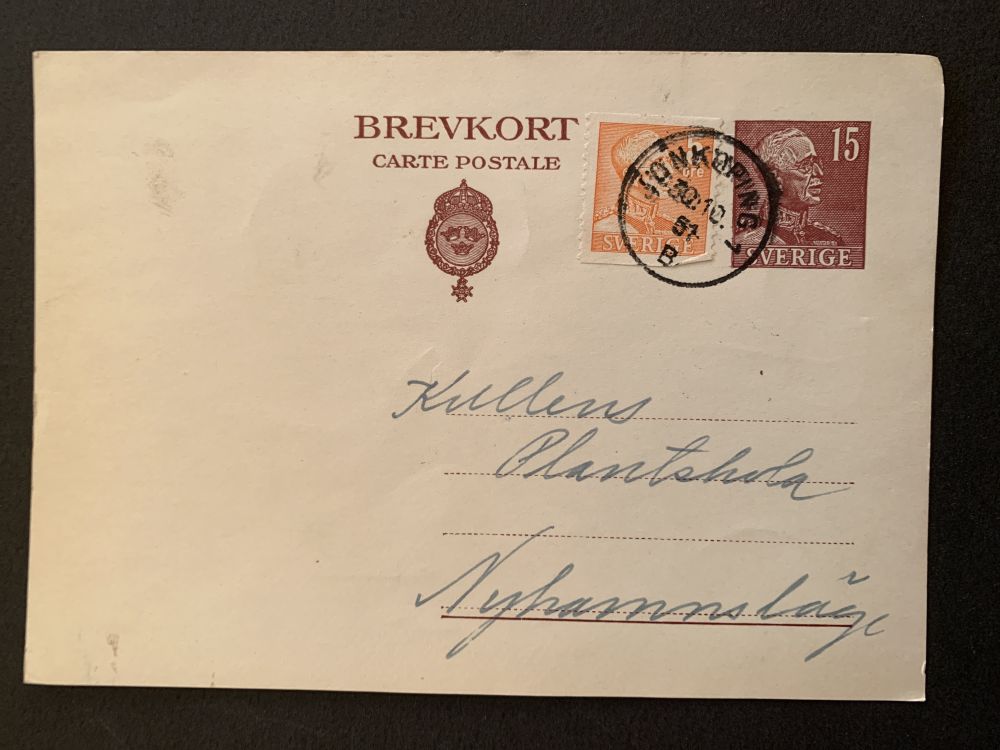 BREVKORT
CARTE POSTALE
5
öre
SVERIGE
15
SVERIGE
JÖNKÖPING 1
30.10.
51
B
Kullens
Plantskola
Nyhamnsläge